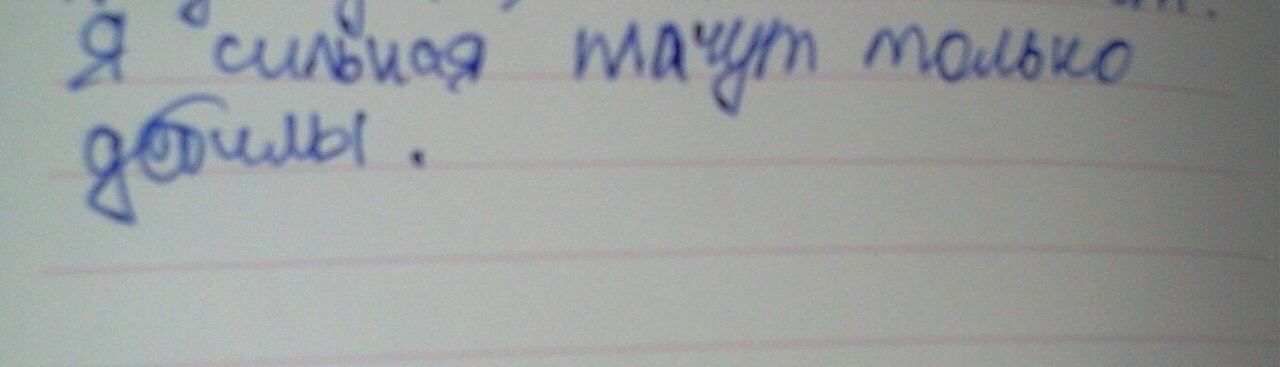 Я сильная плачут только
дебилы.